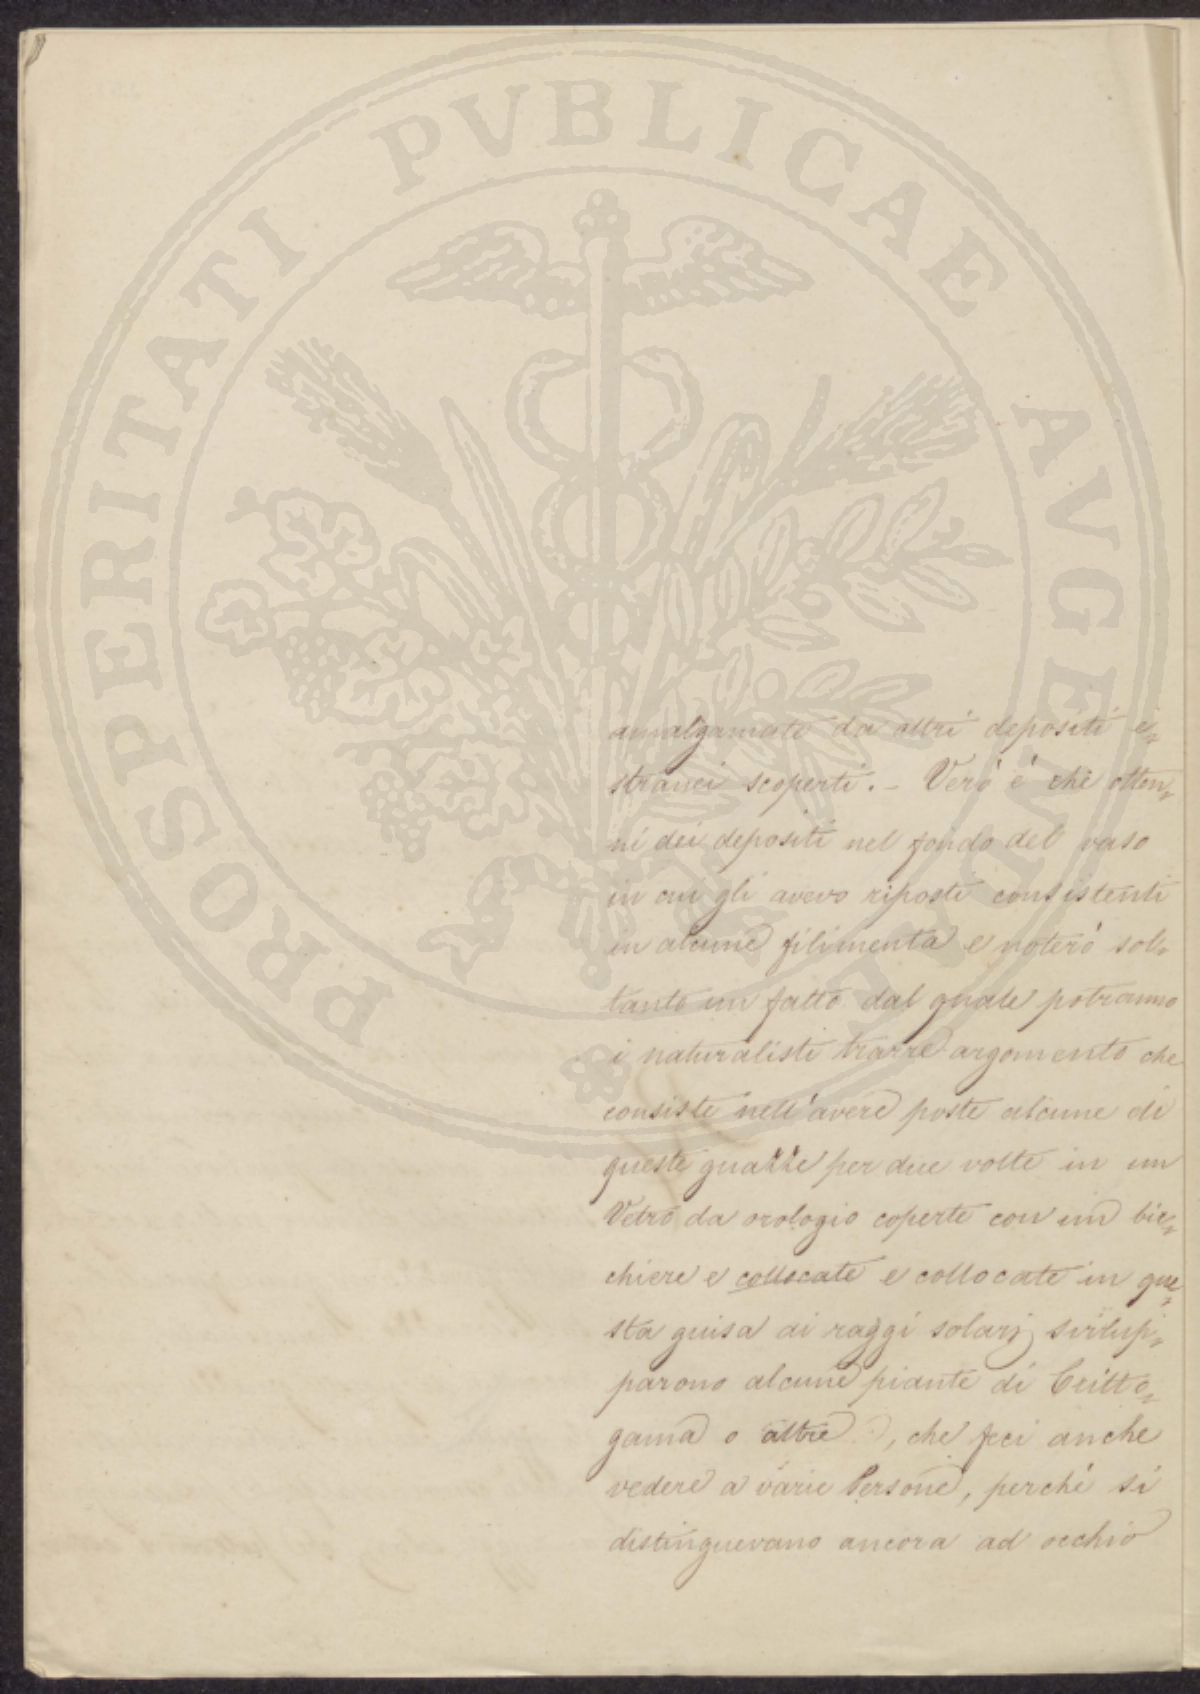 PROSPERITATI PVBLICAE AVGENDAE
amalgamate da altri depositi e=
stranei scoperti. - Vero è che otten=
ni dei depositi nel fondo del vaso
in cui gli avevo riposti consistenti
in alcune filimenta e noterò sol=
tanto un fatto dal quale potranno
i naturalisti trarre argomento che
consiste nell'avere poste alcune di
queste guazze per due volte in un
Vetro da orologio coperte con un bic=
chiere e collocate e collocate in que=
sta guisa ai raggi solarj svilup=
parono alcune piante di Critto=
gama o altre, che feci anche
vedere a varie Persone, perchè si
distinguevano ancora ad occhio